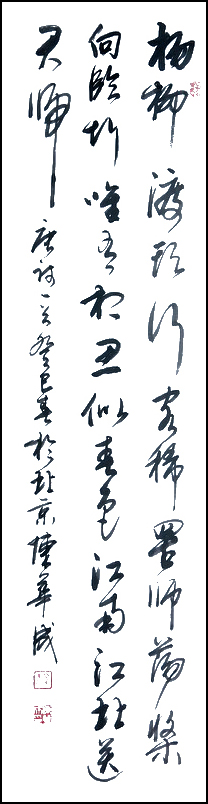 杨柳渡头行客稀罟师荡桨
向临圻唯有相思似春色江南江北送
君归
唐诗一首癸巳春於北京华成